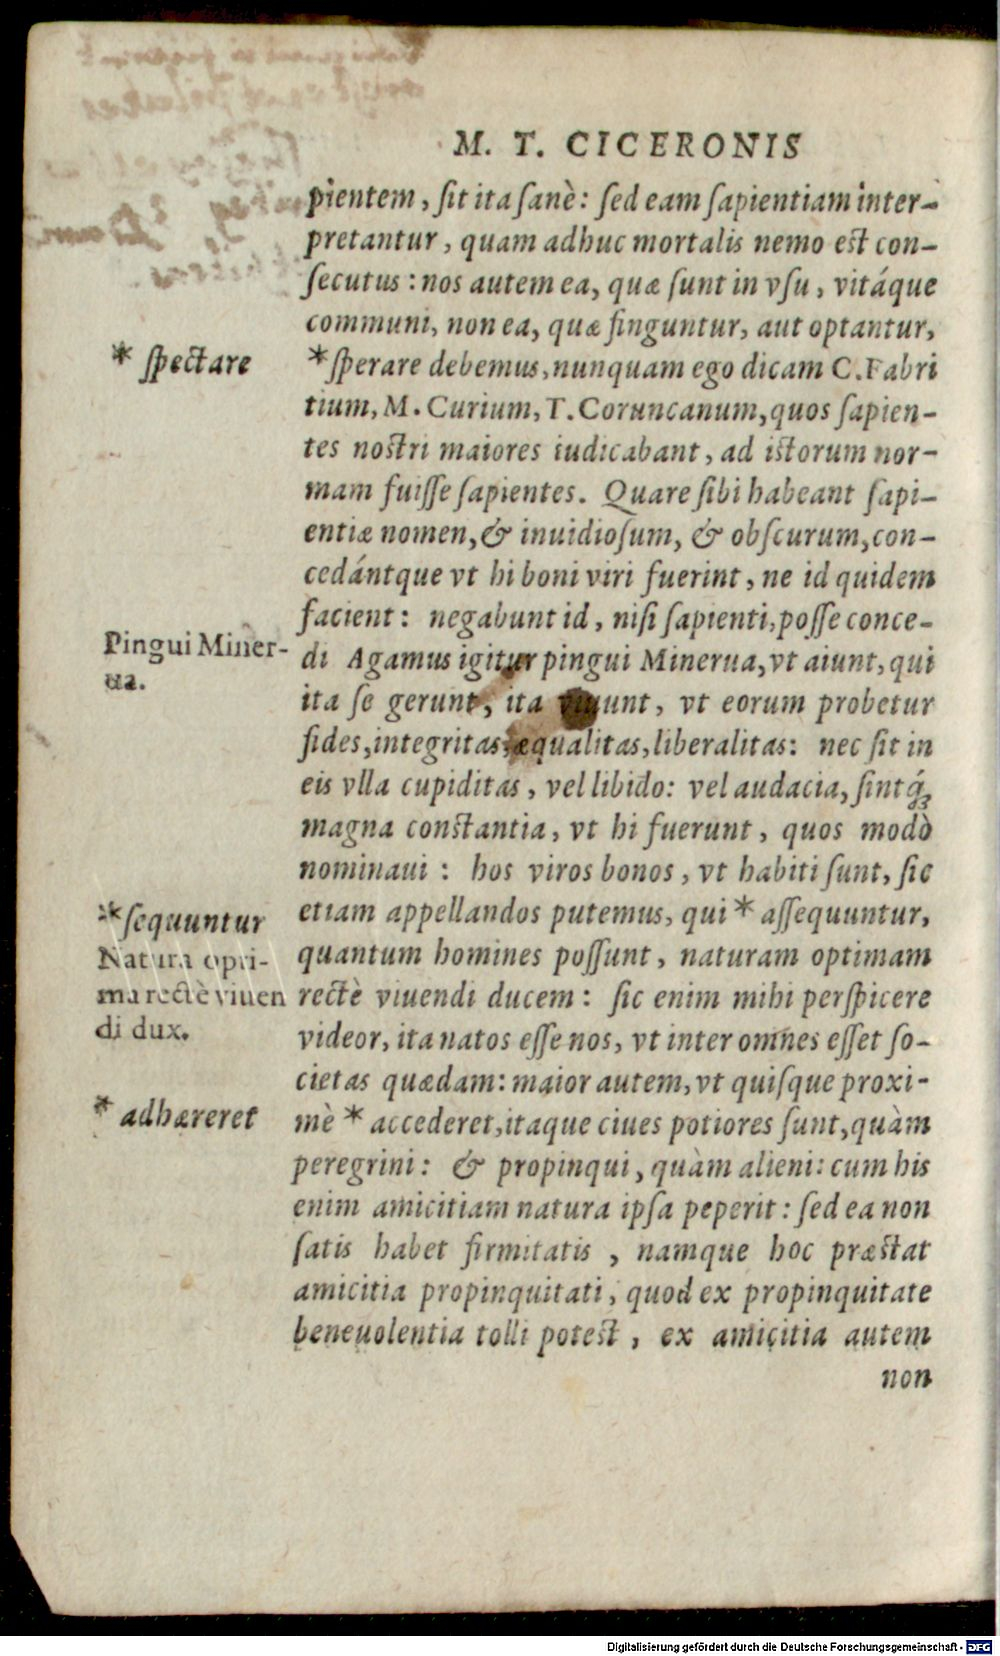 M. T. CICERONIS
pientem, ſit ita ſanè: ſed eam ſapientiam inter-
pretantur, quam adhuc mortalis nemo est con-
ſecutus: nos autem ea, quæ ſunt in vſu, vitáque
communi, non ea, quæ finguntur, aut optantur,
* ſpectare
*ſperare debemus, nunquam ego dicam C. Fabri
tium, M. Curium, T. Coruncanum, quos ſapien-
tes nostri maiores iudicabant, ad istorum nor-
mam fuiſſe ſapientes. Quare ſibi habeant ſapi-
entiæ nomen, & inuidioſum, & obſcurum, con-
cedántque vt hi boni viri fuerint, ne id quidem
facient: negabunt id, niſi ſapienti, poſſe conce-
Pingui Miner-
ua.
di Agamus igitur pingui Minerua, vt aiunt, qui
ita ſe gerunt, ita viuunt, vt eorum probetur
fides, integritas, æqualitas, liberalitas: nec ſit in
eis vlla cupiditas, vel libido: vel audacia, ſintq́;
magna constantia, vt hi fuerunt, quos modò
nominaui: hos viros bonos, vt habiti ſunt, ſic
*ſequuntur
etiam appellandos putemus, qui * aſſequuntur,
Natura opti-
ma rectè viuen
di dux.
quantum homines poſſunt, naturam optimam
rectè viuendi ducem: ſic enim mihi perſpicere
videor, ita natos eſſe nos, vt inter omnes eſſet ſo-
cietas quædam: maior autem, vt quiſque proxi-
* adhæreret
mè * accederet, itaque ciues potiores ſunt, quàm
peregrini: & propinqui, quàm alieni: cum his
enim amicitiam natura ipſa peperit: ſed ea non
ſatis habet firmitatis, namque hoc præstat
amicitia propinquitati, quod ex propinquitate
beneuolentia tolli potest, ex amicitia autem
non
Digitalisierung gefördert durch die Deutsche Forschungsgemeinschaft - DFG